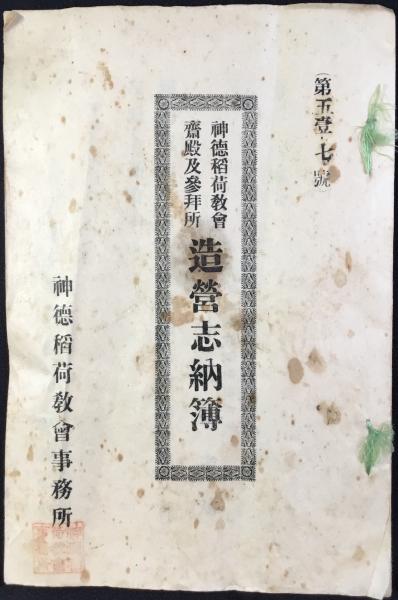 （第五壹七號）
神德稻荷教會
齋殿及參拜所
造營志納簿
神德稻荷教會事務所